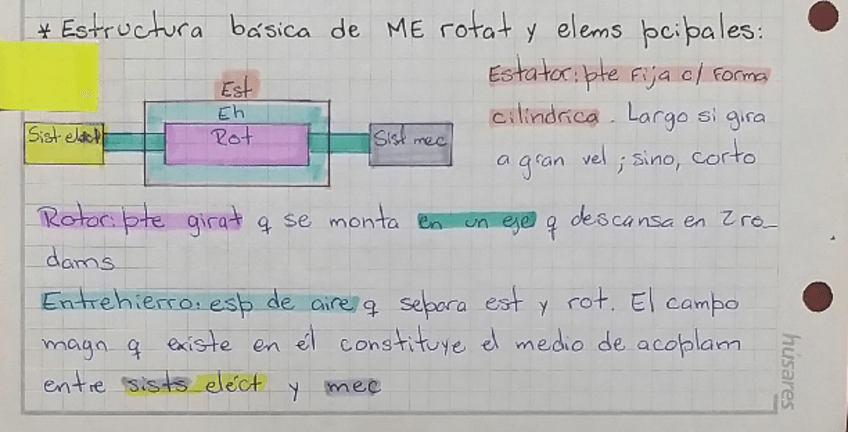 * Estructura básica de ME rotat y elems pcipales:
Est
Eh
Sist eléct
Rot
Sist mec
Estator: pte fija c/ forma
cilíndrica. Largo si gira
a gran vel; sino, corto
Rotor: pte girat q se monta en un eje q descansa en 2 ro_
dams
Entrehierro: esp de aire q separa est y rot. El campo
magn q existe en él constituye el medio de acoplam
entre sists eléct y mec
húsares